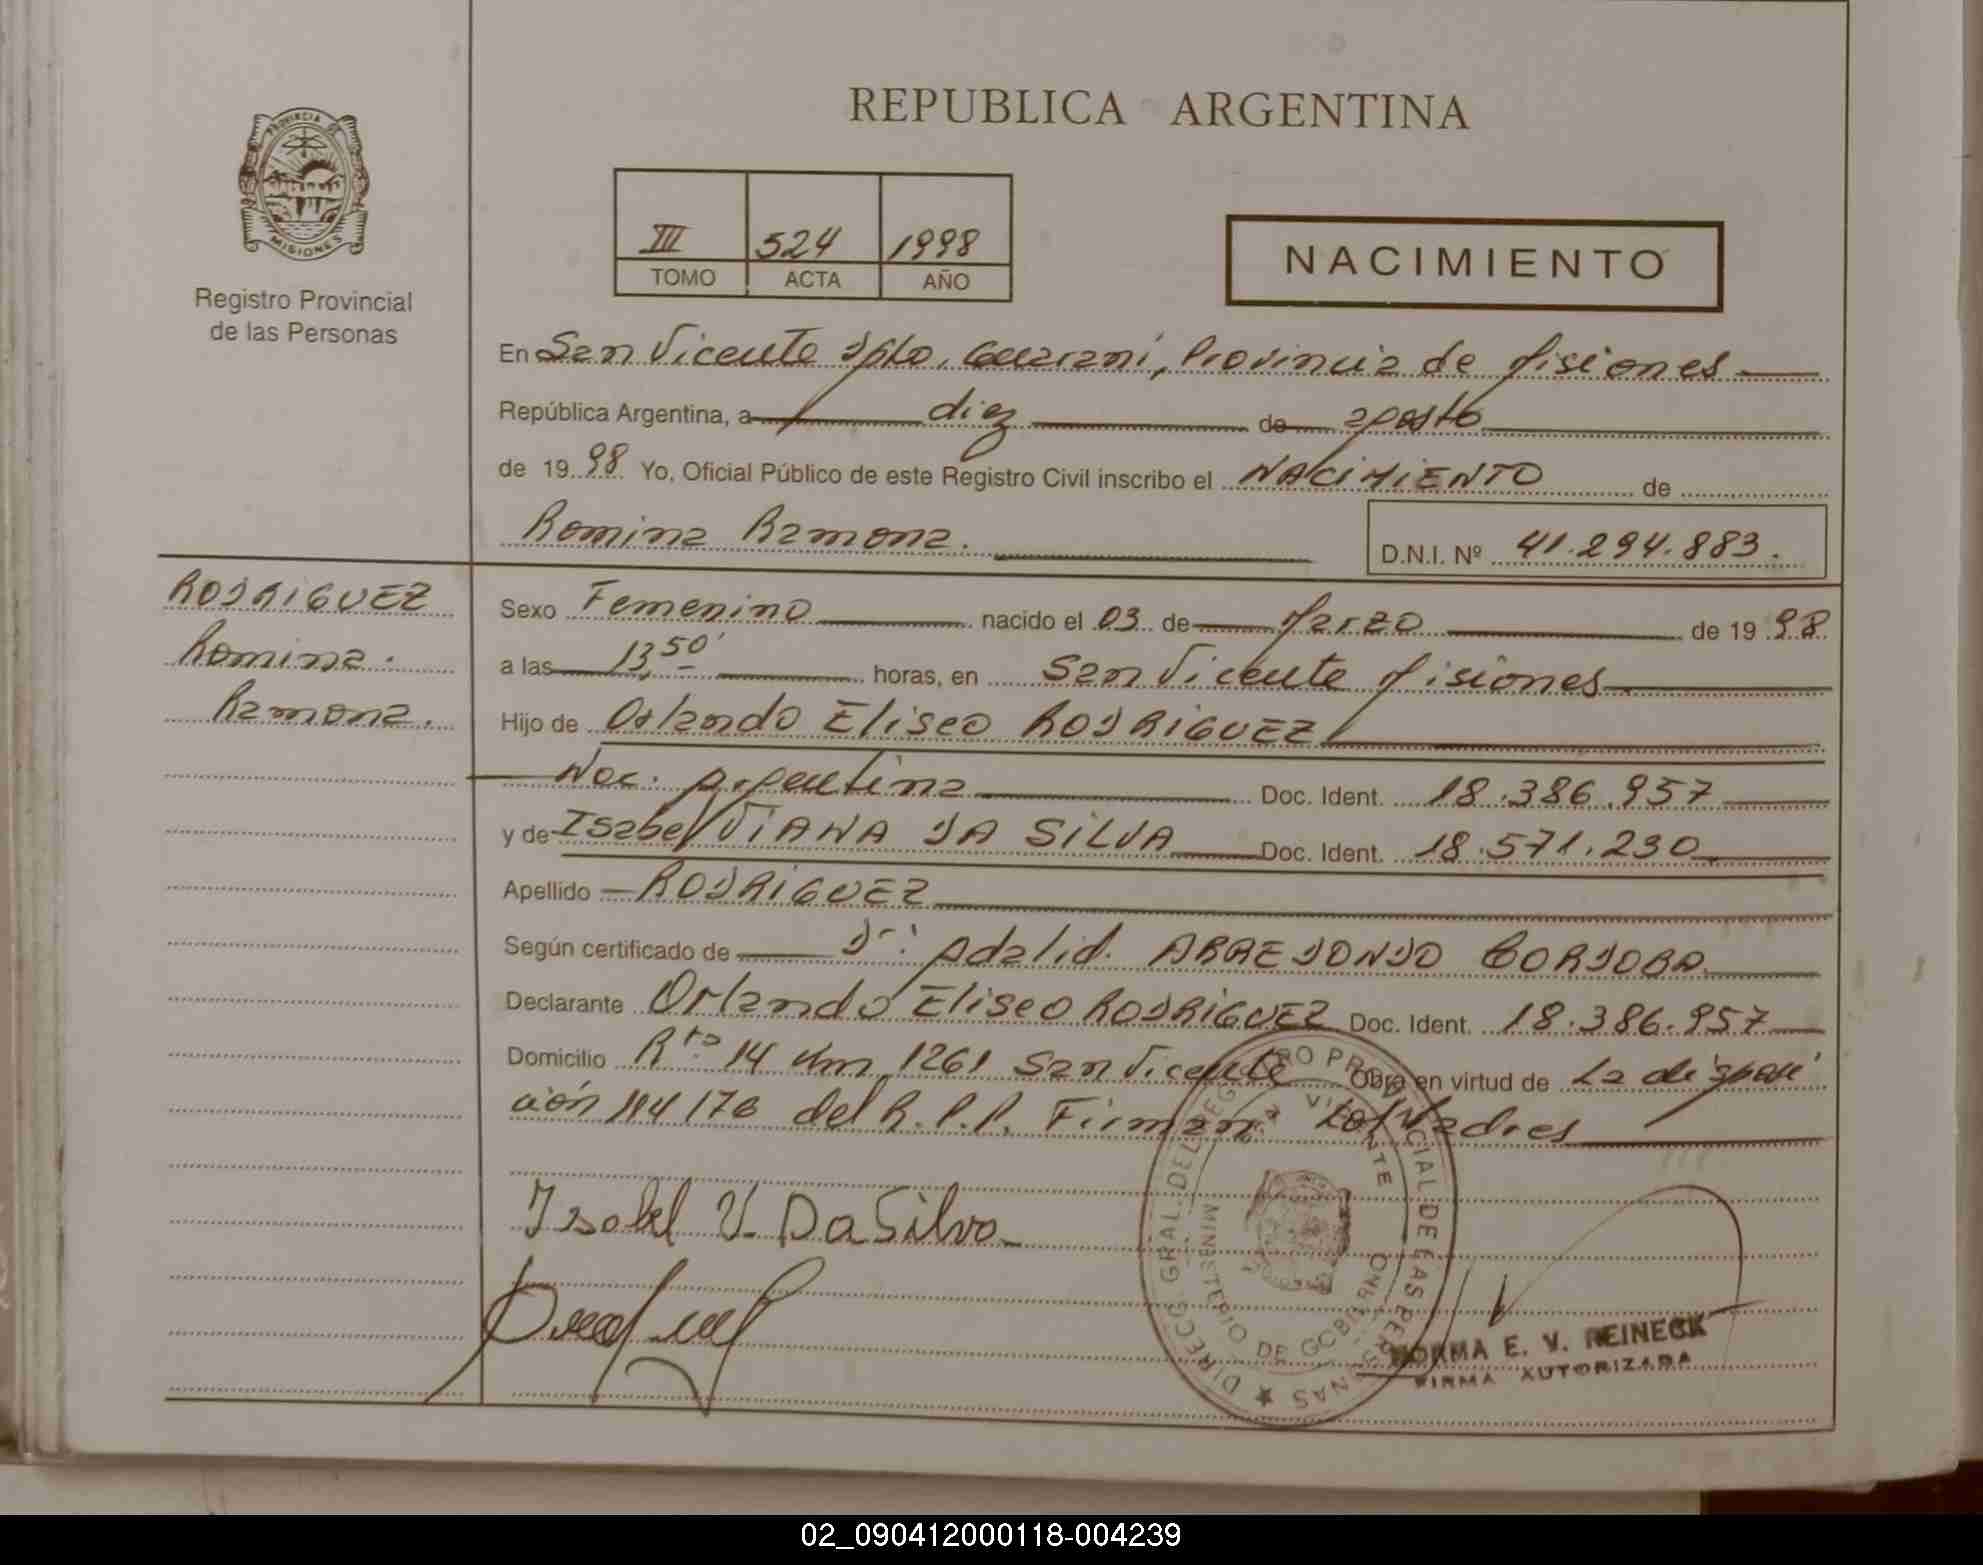 REPUBLICA ARGENTINA
PROVINCIA DE
MISIONES
Registro Provincial
de las Personas
III 524 1998
TOMO ACTA AÑO
NACIMIENTO
En San Vicente Dpto. Guarani, Provincia de Misiones
República Argentina, a diez de agosto
de 1998 Yo, Oficial Público de este Registro Civil inscribo el NACIMIENTO de
Romina Ramona.
D.N.I. Nº 41.294.883.
RODRIGUEZ
Romina.
Ramona.
Sexo Femenino nacido el 03 de Marzo de 1998
a las 13,50' horas, en San Vicente Misiones
Hijo de Orlando Eliseo RODRIGUEZ
Nac. Argentina Doc. Ident. 18.386.957
y de Isabel VIANA DA SILVA Doc. Ident. 18.571.230
Apellido RODRIGUEZ
Según certificado de Dr. Adalid. ARREDONDO CORDOBA
Declarante Orlando Eliseo RODRIGUEZ Doc. Ident. 18.386.957
Domicilio Rta 14 Km 1261 San Vicente Obra en virtud de La disposi
ción 194/76 del R.P.P. Firman Los Padres
Isabel V. Da Silva
DIRECC. GRAL. DEL REGISTRO PROVINCIAL DE LAS PERSONAS
MINISTERIO DE GOBIERNO
VICENTE
NORMA E. V. REINECK
FIRMA AUTORIZADA
02_090412000118-004239